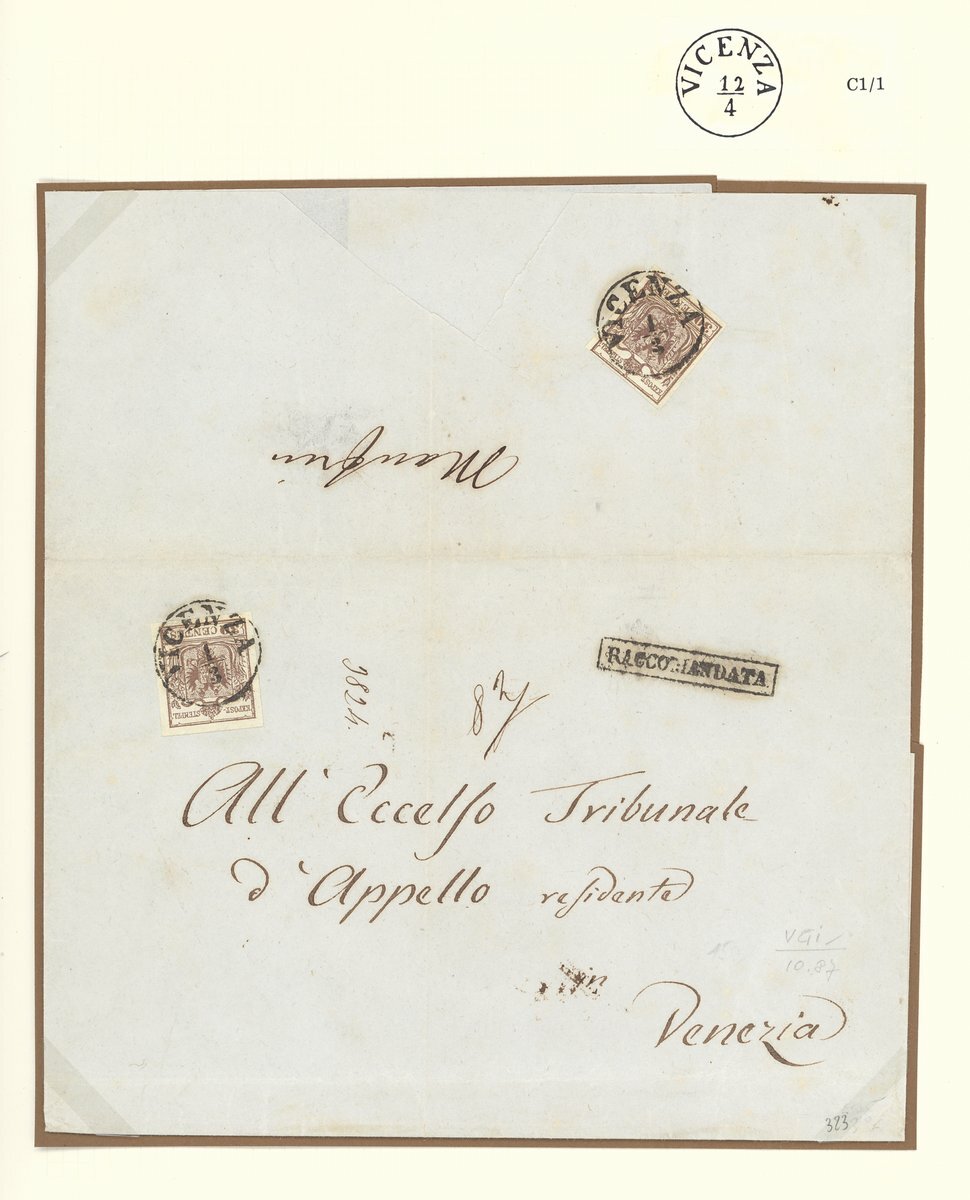 VICENZA
12
4
C1/1
VICENZA
1
3
VICENZA
1
3
CENTES
KKPOST-STEMPEL
9824.
RACCOMANDATA
All' Eccelso Tribunale
d'Appello residente
in
Venezia
VGi
10.87
323